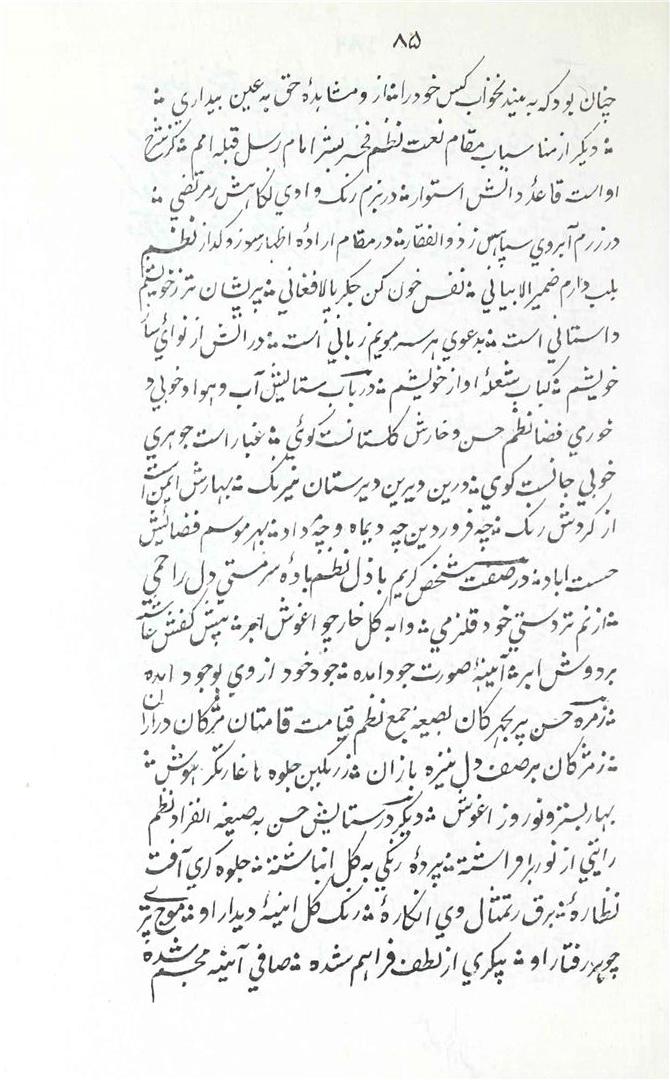 ۸۵
چنان بود که به بیند بخواب کس خود را؞ از و مشاهدهٔ حق به عین بیداری ؞
؞ دیگر از مناسبات مقام نعت نظم فخر بشر امام رسل قبله امم ؞ کز شرع
او است قاعدهٔ دانش استوار؞ در بزم رنک و ادی نکاهش مرتضی ؞
در رزم آبروی سپاهس ز ذوالفقار؞ در مقام اراده اظهار سوز و کداز نظم
بلب دارم ضمیر الا بیانی ؞ نفس خون کن جکر پالا فغانی ؞ پریشان تر ز خویشم
داستانی است ؞ بدعوی هر سر مویم زبانی است ؞ در اتش از نوای ساز
خویشم ؞ کباب شعلهٔ اواز خویشم ؞ در باب ستالیش آب و هوا و خوبی و
خوری فضا نظم حسن و خارش کلستانست کوئی ؞ غبار است جوهری
خوبی جانست کوی ؞ درین دیرین دیرستان نیرنک ؞ بهارش ایمن است
از کردش رنک ؞ چه فروردین چه دیماه و چه داد ؞ بهر موسم فضائیش
جست اباد ؞ در صفت شخص کریم باذل نظم بادهٔ سرمستی دل را خمی
؞ از نم تردستی خود قلزمی ؞ وا به کل خار چو اغوش ابر ؞ پیش کفش
بر دوش ابر ؞ آیینهٔ صورت جود امده ؞ جود خود از وی بوجود امده
؞ زمرهٔ حسن پریچهرکان بصیغه جمع نظم قیامت قامتان مژکان درازان
؞ ز مژکان بر صف دل نیزه بازان ؞ ز رنکین جلوه ها غارتکر هوش ؞
بهار بستر و نوروز اغوش ؞ دیکر در ستالیش حسن به صیغه الفراد نظم
رایتی از نور برافراشته ؞ پردهٔ رنکی به کل انباشته ؞ جلوه کری آفت
نظارهٔ ؞ برق ز تمثال وی انکارهٔ ؞ رنک کل ایینهٔ دیدار او ؞ موج
جوهر رفتار او ؞ پیکری از لطف فراهم شده ؞ صافی آئینه مجسم شده